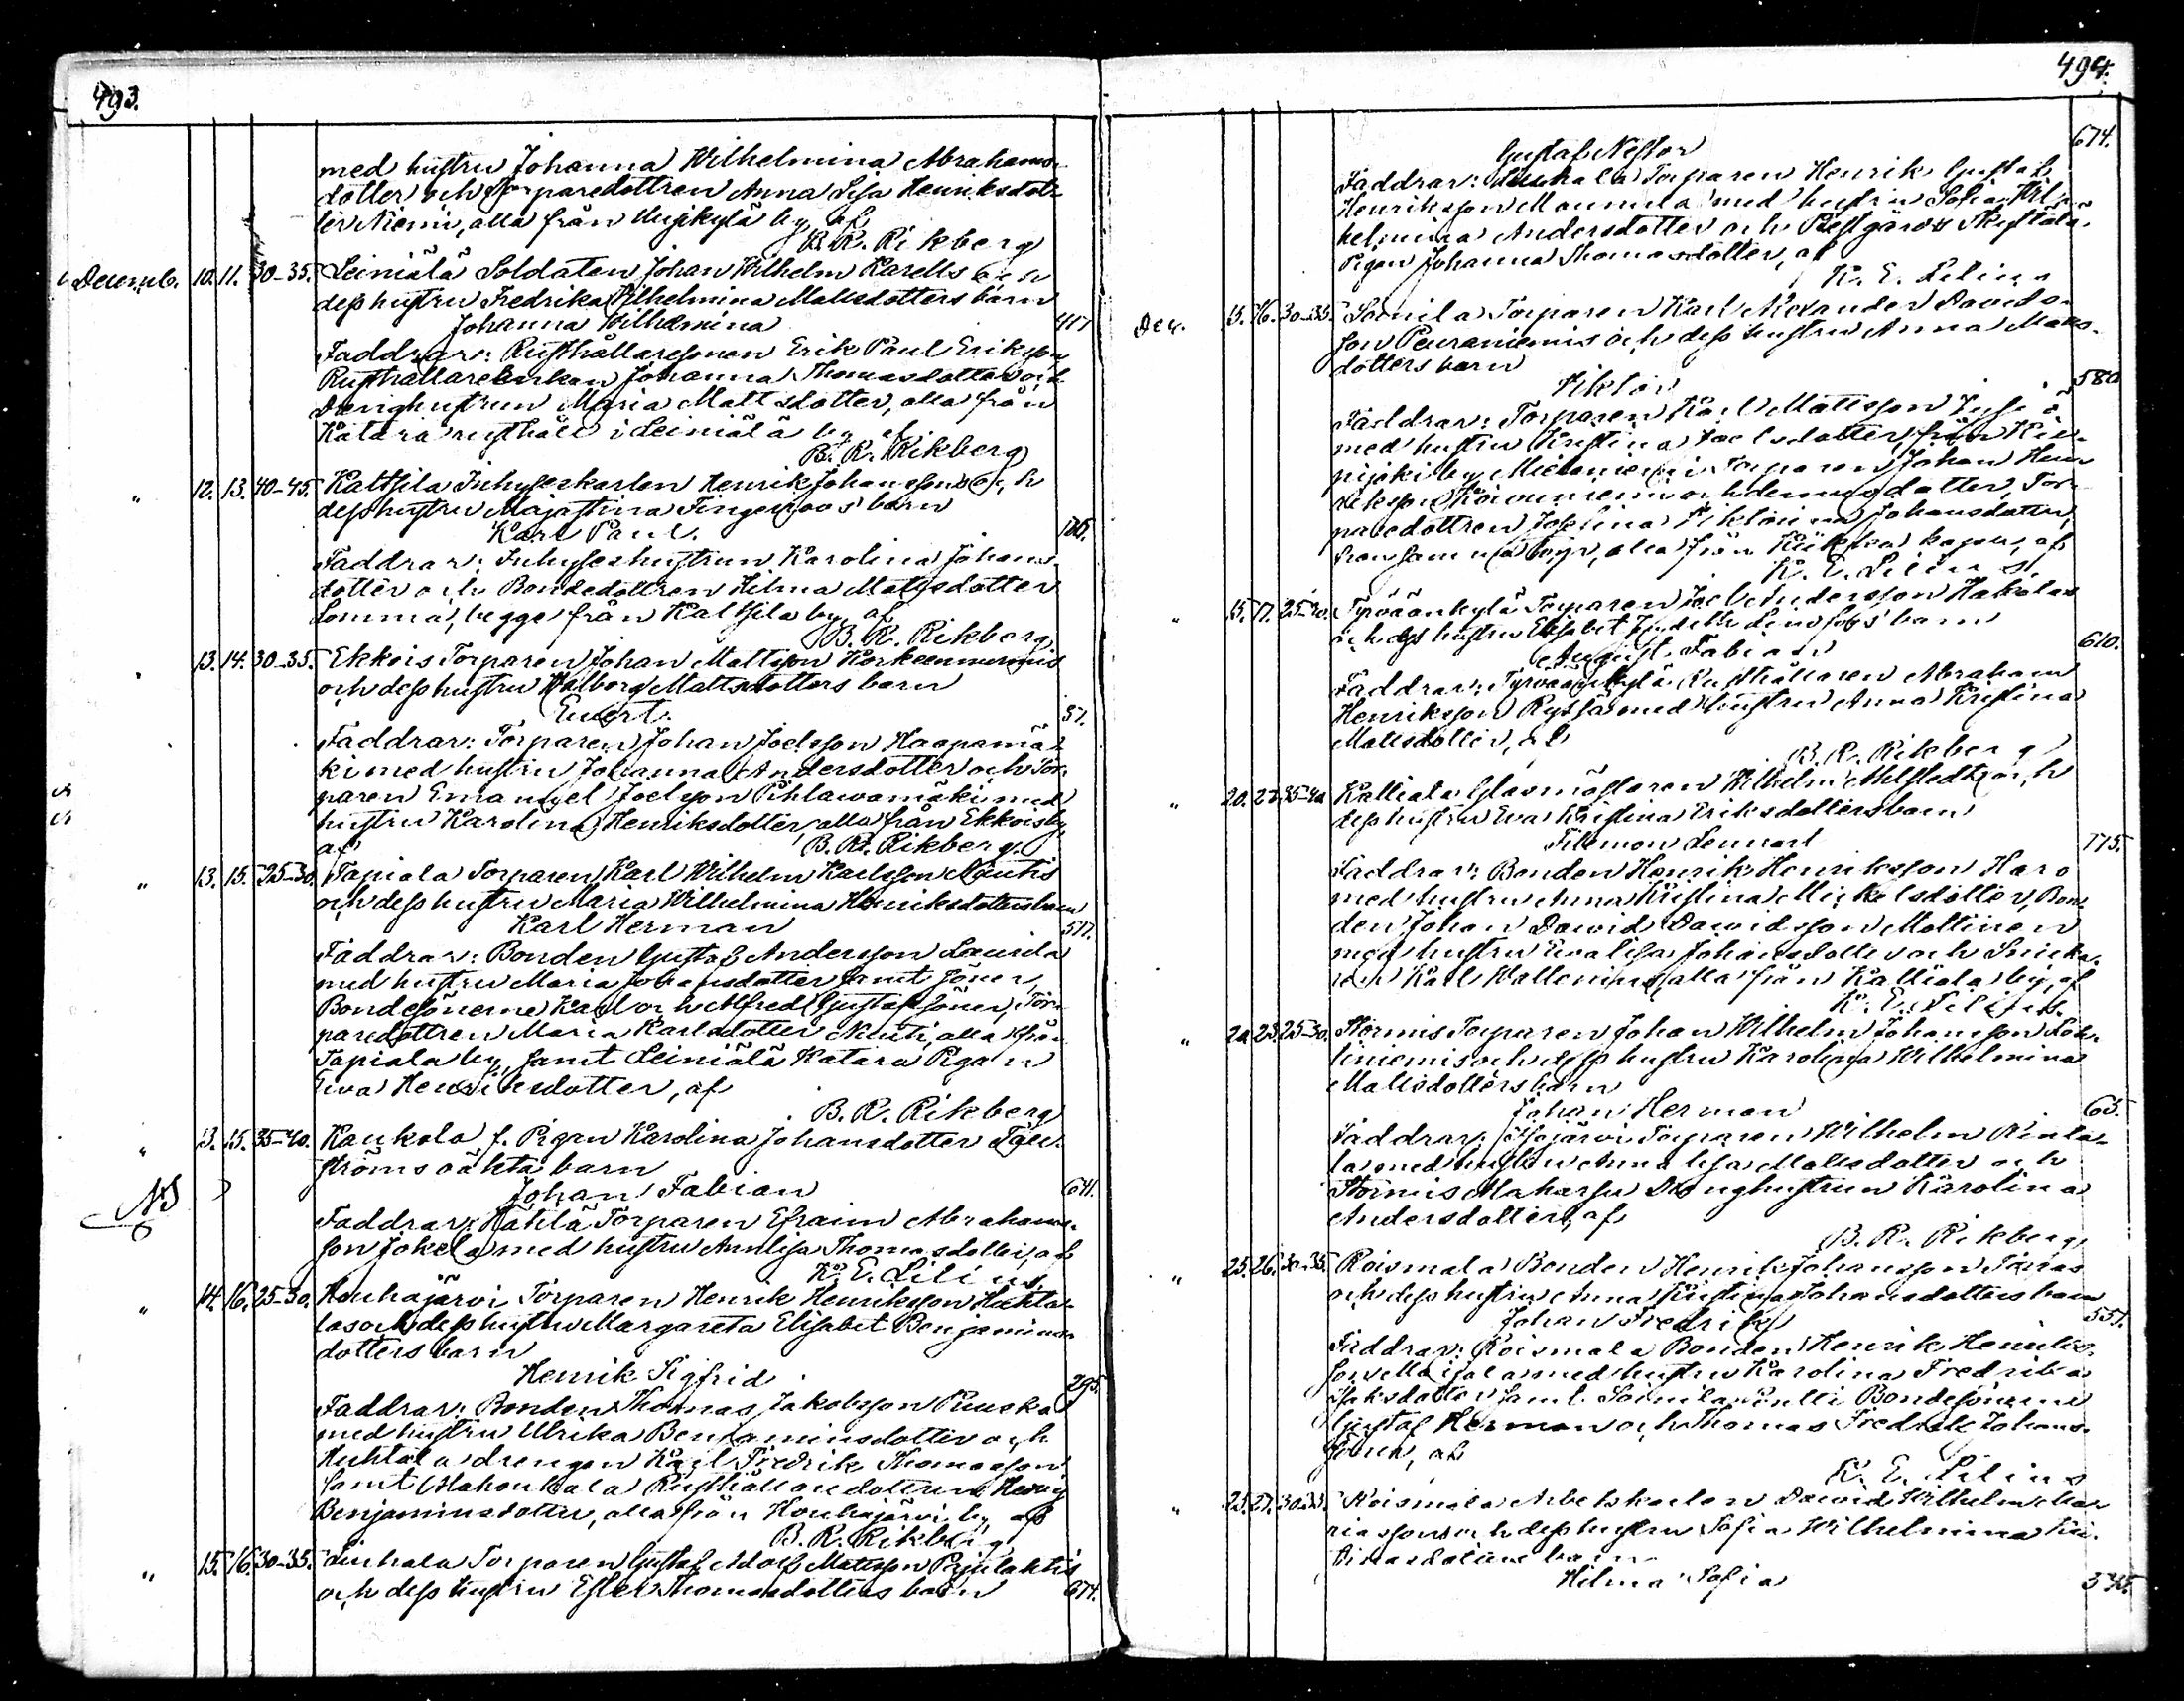 493.
med hustru Johanna Wilhelmina Abrahams-
dotter och Torparedottren Anna Lisa Henriksdot-
ter Niemi, alla från by, af
B. R. Rikberg
Decemb. 10. 11. 30-35. Leiniälä Soldaten Johan Wilhelm Karells och
dess hustru Fredrika Wilhelmina Mattsdotters barn
Johanna Wilhelmina 417
Faddrar: Rusthållaresonen Erik Paul Eriksson,
Rusthållareenkan Johanna Thomasdotter och
Drenghustrun Maria Mattsdotter, alla från
Katara rusthåll i Leiniälä by, af
B. R. Rikberg
" 12. 13. 40-45. Kaltsila Inhyseskarlen Henrik Johanssons och
dess hustru Majastina Fingerroos' barn
Karl Paul.
Faddrar: Inhyseshustrun Karolina Johans-
dotter och Bondedottren Hilma Mattsdotter
Lomma, begge från Kaltsila by, af
B. R. Rikberg
" 13. 14. 30-35. Ekkois Torparen Johan Mattsson Korkeenniemis
och dess hustru Walborg Mattsdotters barn
Evert. 57.
Faddrar: Torparen Johan Joelsson Haapamä-
ki med hustru Johanna Andersdotter och Tor-
paren Emanuel Joelsson Pihlawamäki med
hustru Karolina Henriksdotter, alla från Ekkois by,
af B. R. Rikberg.
" 13. 15. 25-30. Tapiola Torparen Karl Wilhelm Karlsson Neutis
och dess hustru Maria Wilhelmina Henriksdotters barn
Karl Herman 577.
Faddrar: Bonden Gustaf Andersson Laurila
med hustru Maria Johansdotter samt söner,
Bondesönerne Karl och Alfred Gustafssöner, Tor-
paredottren Maria Karlsdotter Neuti, alla från
Tapiola by, samt Leiniälä Katara Pigan
Eva Henriksdotter, af
B. R. Rikberg
" 13. 15. 35-40. Kaukola f. Pigan Karolina Johansdotter
ströms oäkta barn
Johan Fabian 641.
Faddrar: Torparen Efraim Abrahams-
son Jokela med hustru Annlisa Thomasdotter, af
K. E. Lilius
" 14. 16. 25-30. Houhajärvi Torparen Henrik Henriksson Huhta-
las och dess hustru Margareta Elisabet Benjamins-
dotters barn
Henrik Sigfrid 295.
Faddrar: Bonden Thomas Jakobsson Puuska
med hustru Ulrika Benjaminsdotter och
Huhtala drengen Karl Fredrik Thomasson
samt Rusthållaredottren
Benjaminsdotter, alla från Houhajärvi by, af
B. R. Rikberg
" 15. 16. 30-35. Liuhala Torparen Gustaf Adolf Mattsson Pajulahtis
och dess hustru Ester Thomasdotters barn 674.
494.
Gustaf Nestor 674.
Faddrar: Liuhala Torparen Henrik Gustaf
Henriksson Mannila med hustru Sofia Wil-
helmina Andersdotter och Prestgårds
Pigan Johanna Thomasdotter, af
K. E. Lilius
Dec. 15. 16. 30-35. Soinila Torparen Karl Alexander Davids-
son Peuraniemis och dess hustru Anna Mats-
dotters barn
Viktor 580
Faddrar: Torparen Karl Mattsson
med hustru Kristina Joelsdotter, från
by, Torparen Johan Hen-
riksson och dennes dotter, Tor-
paredottren Josefina Viktorina Johansdotter,
från samma by, alla från kapell, af
K. E. Lilius.
" 15. 17. 25-30. Tyrväänkylä Torparen Joel Andersson Hakalas
och dess hustru Elisabet barn
August Fabian 610.
Faddrar: Tyrväänkylä Rusthållaren Abraham
Henriksson Ryssä med hustru Anna Kristina
Mattsdotter, af
B. R. Rikberg
" 20. 35-40 Kalliala Glasmästaren Wilhelm Ahlstedts och
dess hustru Eva Kristina Eriksdotters barn
Filemon Lennart 775.
Faddrar: Bonden Henrik Henriksson Haro
med hustru Anna Kristina Mickelsdotter, Bon-
den Johan David Davidsson Mattinen
med hustru Evalisa Johansdotter och Snicka-
ren Karl Wallenius, alla från Kalliala by, af
K. E. Lilius.
" 20. 23. 25-30. Stormis Torparen Johan Wilhelm Johansson
niemis och dess hustru Karolina Wilhelmina
Mattsdotters barn
Johan Herman 65.
Faddrar: Torparen Wilhelm
med hustru Anna Lisa Mattsdotter och
Stormis Drenghustrun Karolina
Andersdotter, af
B. R. Rikberg
" 25. 26. 30-35. Roismala Bonden Henrik Johansson
och dess hustru Anna Kristina Johansdotters barn
Johan Fredrik 557.
Faddrar: Roismala Bonden Henrik Henriks-
son med hustru Karolina Fredrika
Isaksdotter samt Soinila Bondesönerne
Gustaf Herman och Thomas Fredrik Johans-
söner, af
K. E. Lilius
" 25. 27. 30-35. Roismala Arbetskarlen David Wilhelm Ma-
riassons och dess hustru Sofia Wilhelmina
barn
Hilma Sofia